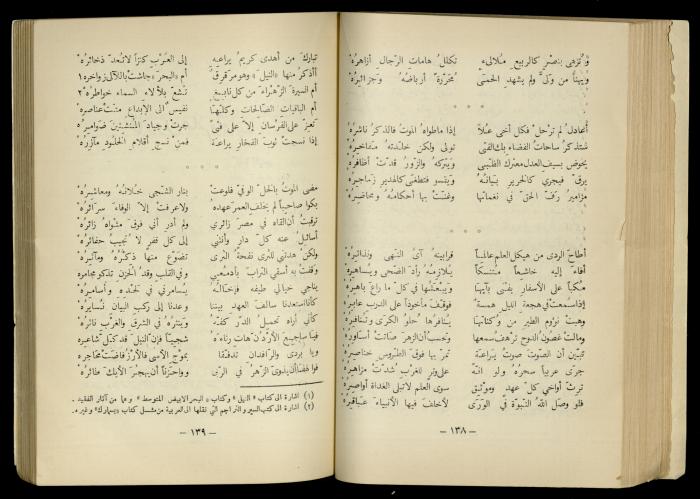 وتزهى بنصر كالربيع تكلل هامات الرجال أزاهره
ويهنأ من ولى ولم يشهد الحمى محررة أرباضه وجزائره
أعادل لم ترحل فكل أخي علا إذا ما طواه الموت فالذكر ناشره
ستذكر ساحات القضاء بك الفتى تولى ولكن خلدته مفاخره
يخوض بسيف العدل معترك ويتركه والزور قدت أظافره
يرق فيجري كالحرير بيانه ويقسو فتطغى كالهدير زماجره
مزامير رف الحق في نغماتها وغنت بها أحكامه ومحاضره
أطاح الردى من هيكل العلم عالما قرابينه آي النهى
أفاء إليه خاشعا متنسكا يلازمه رأد الضحى ويساهره
مكبا على الأسفار يفني بأثرها ويبعثها في كل ما راع باهره
إذا سمعت في هجعة الليل همسة فوقيف مأخوذا على الدرب عابر
وهبت نؤوم الطير من وكناتها ينافرها حلو الكرى وتنافره
ومالت غصون الدوح ترهف سمعها وتحسب أن الزهر صاتت أساوره
تبين أن الصوت صوت يراعة تمر بها فوق الطروس خناصره
جرى عربيا سحره ولو انه على وتر للغرب شدت مزاهره
ترث أواخي كل عهد وموثق سوى العلم لا تبلى الغداة أواصره
فلو وصل الله النبوة في الورى لأخلف فيها الأنبياء عباقره
— ١٣٨ —
تبارك من أهدى كريم يراعه إلى العرب كنزا لا تعد ذخائره
أأذكر منها «النيل» وهو مرقرق أم «البحر» جاشت باللآلي زواخره ١
أم السيرة الزهراء من كل نابغ تشع بلألاء السماء خواطره ٢
أم الباقيات الصالحات وكلها نفيس الى الإبداع متت عناصره
تعيز على الفرسان إلا على فتى جرت وجياد المنشئين ضوامره
إذا نسجت ثوب الفخار يراعة فمن نسج أقلام الخلود مآزره
مضى الموت بالخل الوفي فلوعت بنار الشجى خلانه ومعاشره
بكوا صاحبا لم يخلف العمر عهده ولا عرفت إلا الوفاء سرائره
ترقبت أن ألقاه في مصر زائري ولم أدر أني فوق مثواه زائره
أسائل عنه كل دار وأنثني إلى كل قفر لا تجيب حفائره
ولكن هدتني للثرى نفحة الثرى تضوع منها ذكره ومآثره
وقفت به أسقي التراب بأدمعي وفي القلب وقد الحزن تذكو مجامره
يناجي خيالي طيفه فإخاله يسامرني في لحده وأسامره
كأنا استعدنا سالف العهد بيننا وعدنا إلى ركب البيان نسايره
كأني أراه تحمل الدر كفه وينثره في الشرق والغرب ناثره
فيا ساجع الأرز هات رثاءه شجيا فإن النيل قد شاعره
ويا بردى والرافدان تدفقا بموج الأسى فالأرز فاضت محاجره
ذوى الزهر في الربى وواحزنا أن يهجر الأيك طائره
(١) اشارة الى كتاب «النيل» وكتاب «البحر الابيض المتوسط» وهما من آثار الفقيد .
(٢) اشارة الى كتب السير والتراجم التي نقلها الى العربية من مثل كتاب «بسمارك» وغيره .
— ١٣٩ —